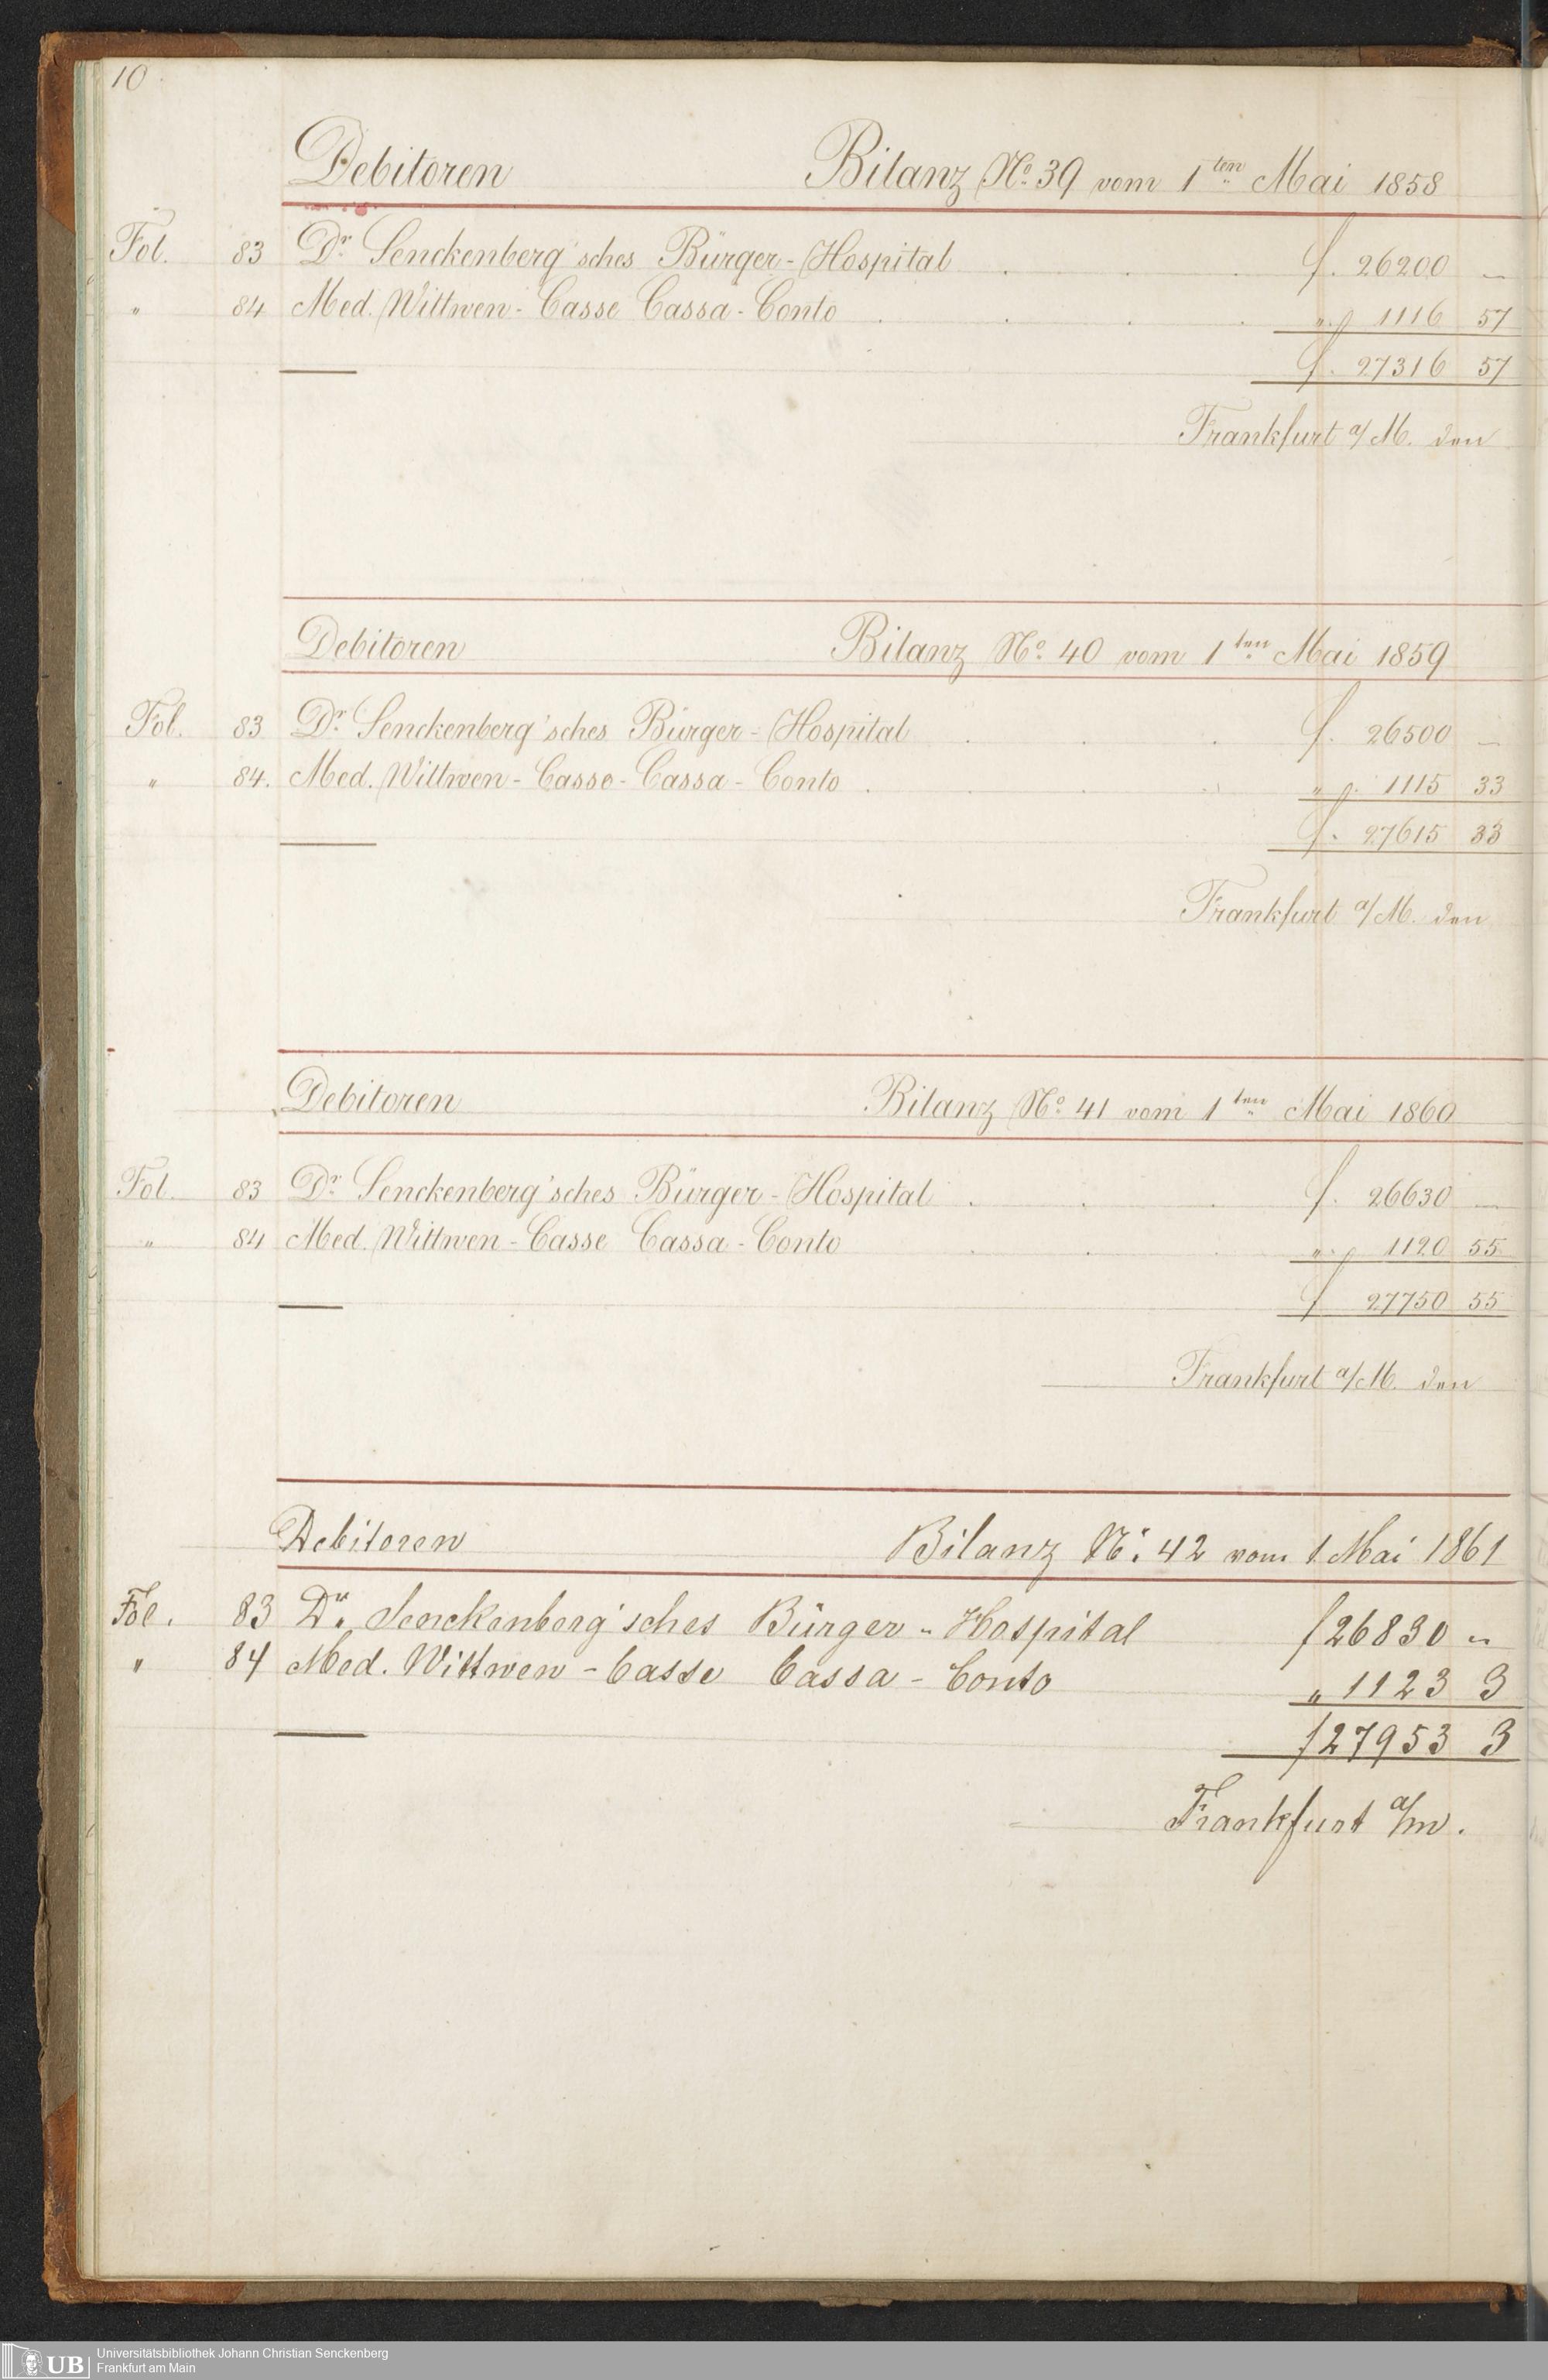 10.
Debitoren Bilanz No. 39 vom 1ten Mai 1858
Fol. 83 Dr. Senckenberg'sches Bürger-Hospital . . . f. 26200 —
" 84 Med. Wittwen-Casse Cassa-Conto . . . . " 1116 57
f. 27316 57
Frankfurt a/M. den
Debitoren Bilanz No. 40 vom 1ten Mai 1859
Fol. 83 Dr. Senckenberg'sches Bürger-Hospital . . . f. 26500 —
" 84. Med. Wittwen-Casse-Cassa-Conto . . . . " 1115 33
f. 27615 33
Frankfurt a/M. den
Debitoren Bilanz No. 41 vom 1ten Mai 1860
Fol. 83 Dr. Senckenberg'sches Bürger-Hospital . . . f. 26630 —
" 84 Med. Wittwen-Casse Cassa-Conto . . . " 1120 55
f 27750 55
Frankfurt a/M. den
Debitoren Bilanz No. 42 vom 1. Mai 1861
Fol. 83 Dr. Senckenberg'sches Bürger-Hospital f 26830 "
" 84 Med. Wittwen-Casse Cassa-Conto " 1123 3
f 27953 3
Frankfurt a/m.
UB Universitätsbibliothek Johann Christian Senckenberg
Frankfurt am Main